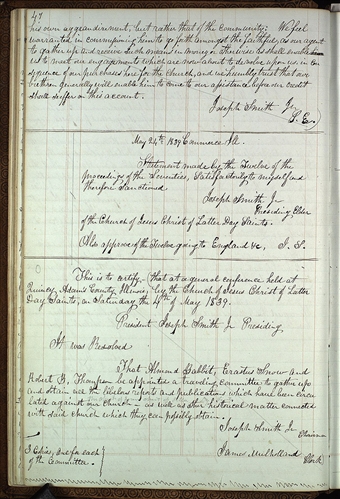 his own aggrandizement, but rather that of the community; We feel
warranted in commissioning him to go forth amongst the faithful, as our agent
to gather up and receive such means in money or otherwise as shall enable
us to meet our engagements which are now about to devolve upon us in con
sequence of our purchases here for the church, and we humbly trust that our
brethren generally will enable him to come to our assistance before our credit
shall suffer on this account.
Joseph Smith Jr
May 24th 1839 Commerce Ill.
Statement made by the Twelve of the
proceedings of the Seventies, Satisfactory to myself and
therefore Sanctioned
Joseph Smith Jr
Presiding Elder
of the Church of Jesus Christ of Latter Day Saints.
Also approve of the Twelve going to England &c, J. S.
This is to certify that at a general conference held at
Quincy, Adams County, Illinois, by the Church of Jesus Christ of Latter
Day Saints, on Saturday the 4th of May 1839.
President Joseph Smith Jr Presiding
It was Resolved
That Almond Babbit, Erastus Snow and
Robert B. Thompson be appointed a traveling committee to gather up
and obtain all the libelous reports and publications which have been circu
lated against our Church - as well as other historical matter connected
with said church which they can possibly obtain.
Joseph Smith Jr
Chairman
3 Copies, one for each
of the Committee.
James Mulholland
Clerk